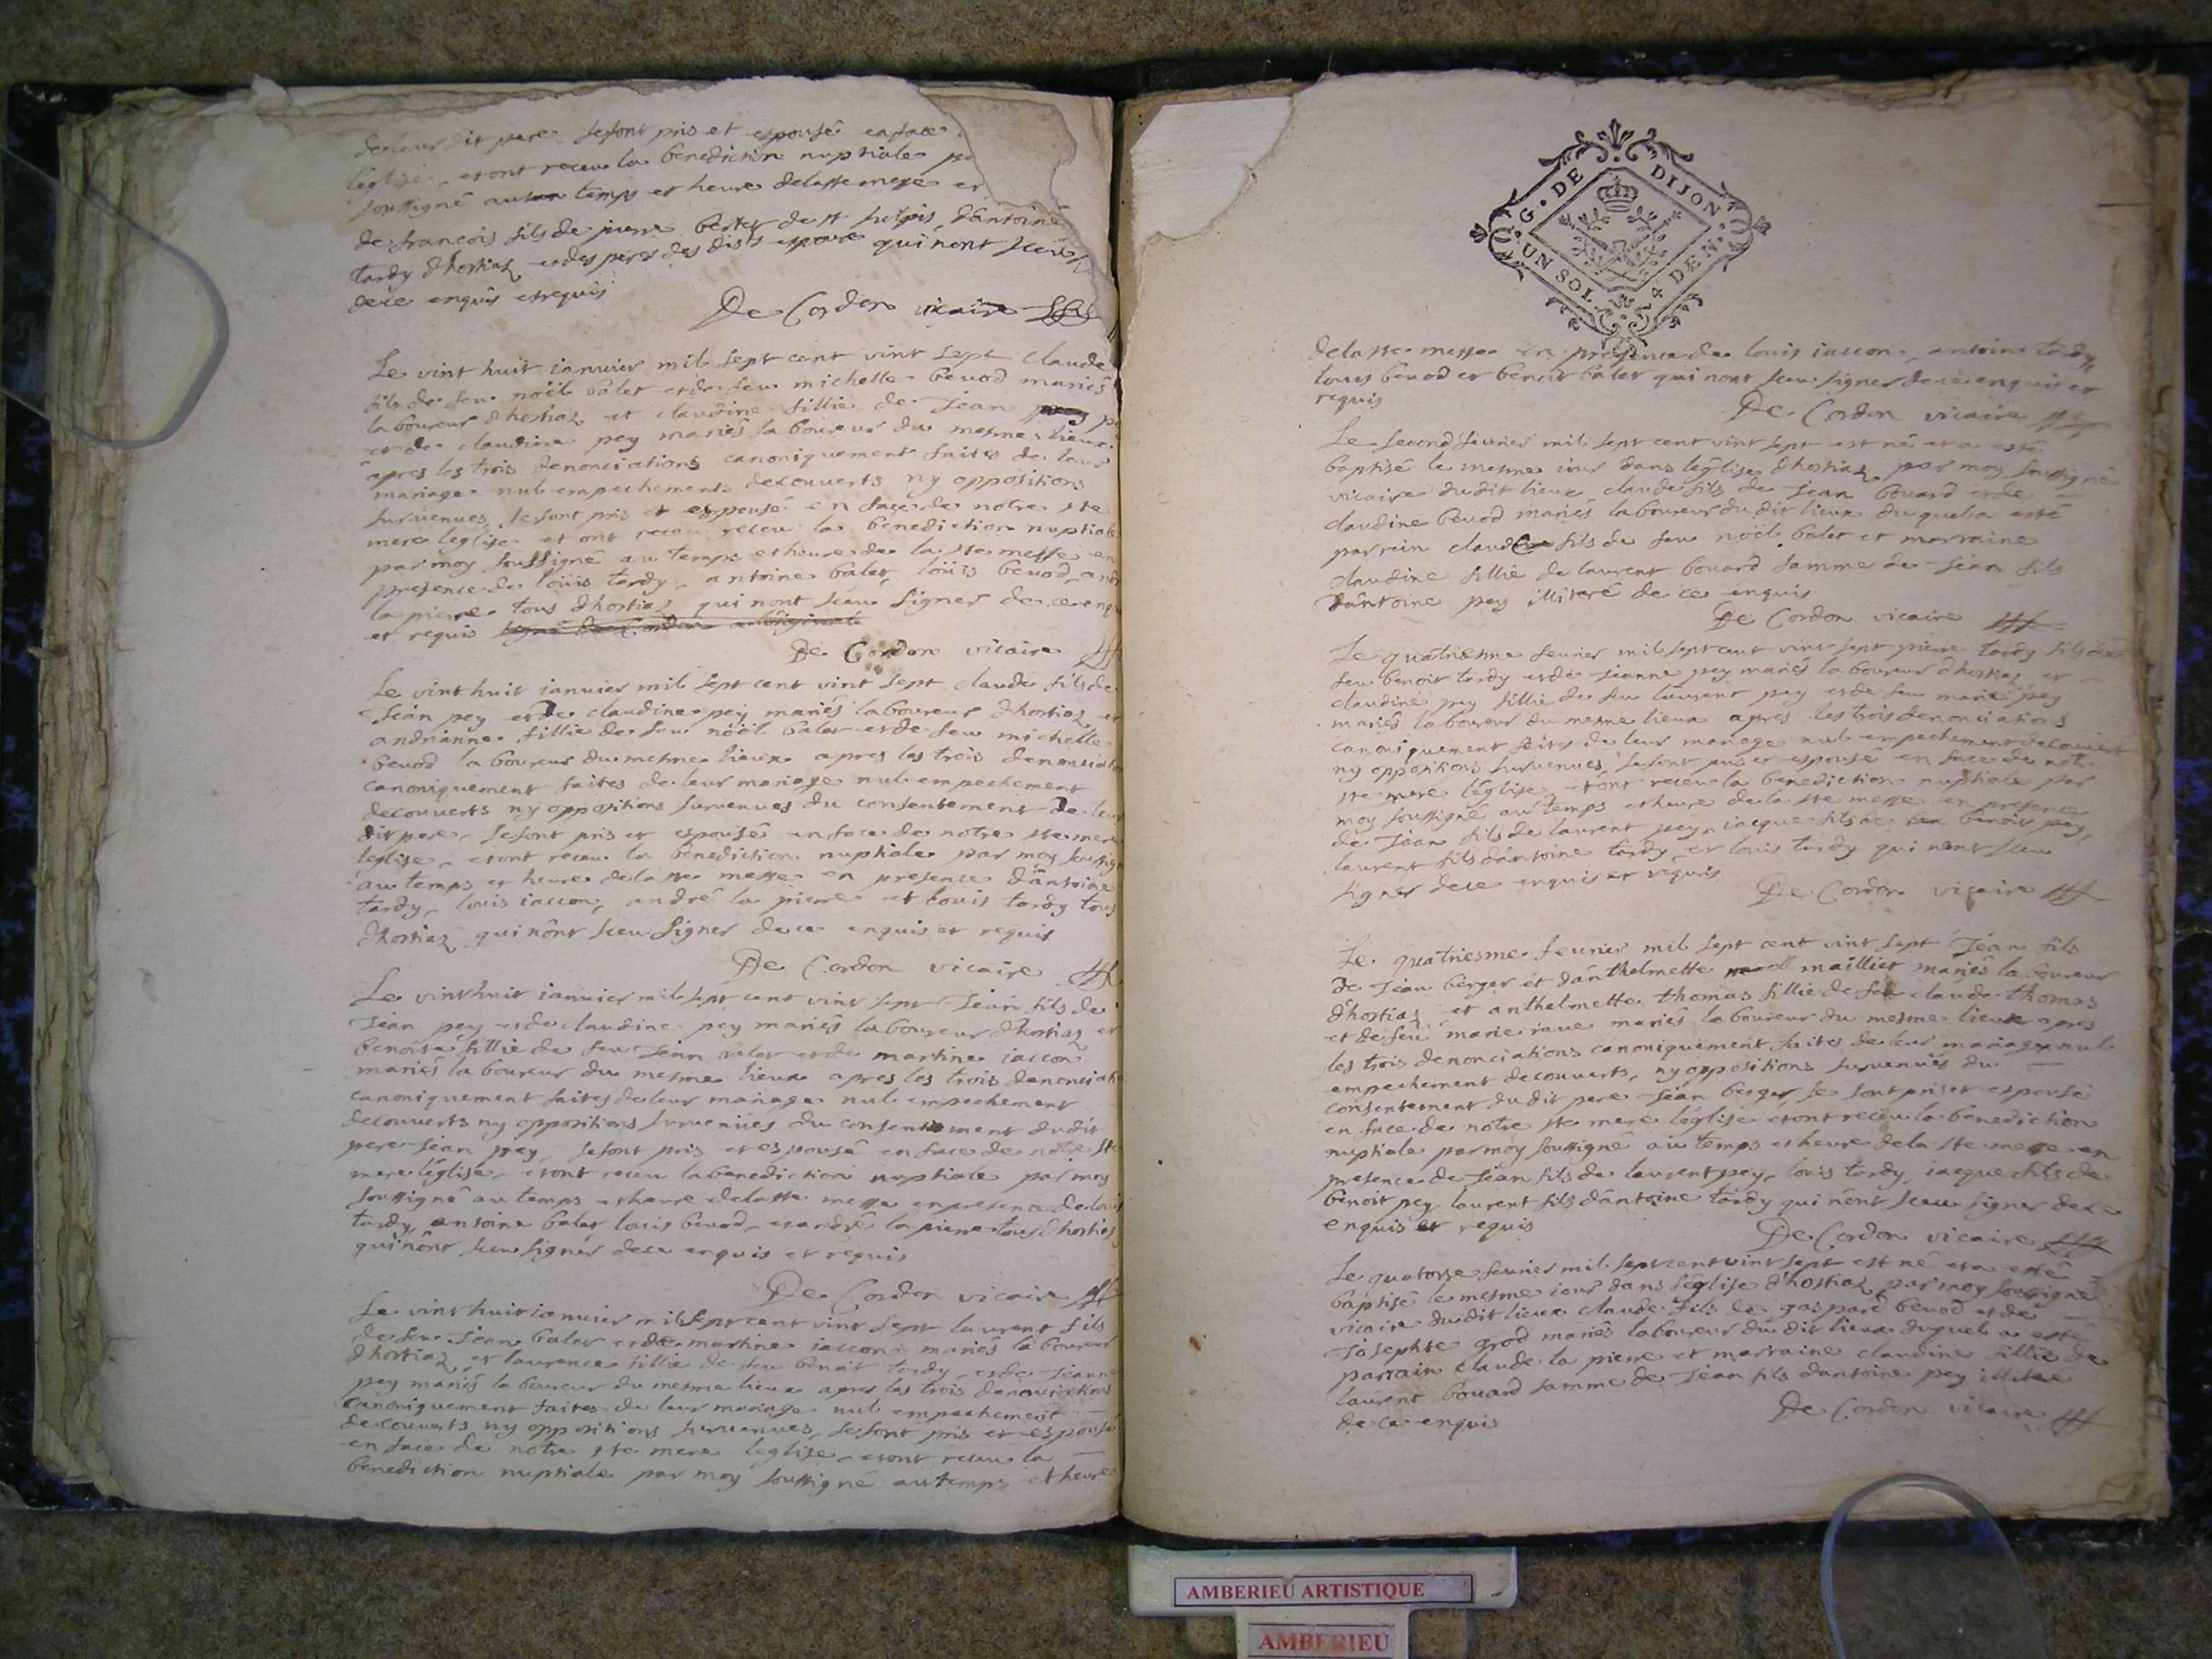 de leur dit pere se sont pris et espousé en face
l'église, et ont receu la benediction nuptiale
soussigné au temps et heure de la ste messe et
de francois fils de pierre de st sulpis, d'antoine
tardy d'hostiaz et des peres des dits espoux qui n'ont sceu
de ce enquis et requis
De Cordon vicaire
Le vint huit ianvier mil sept cent vint sept claude
fils de feu noël balet et de feu michelle bevod mariés
laboureur d'hostiaz et claudine fillie de Jean
et de claudine pey mariés laboureur du mesme lieux
apres les trois denonciations canoniquement faites de leur
mariage nul empechements decouverts ny oppositions
survenues, se sont pris et espousé en face de notre ste
mere l'eglise et ont receu la benediction nuptiale
par moy soussigné au temps et heure de la ste messe en
presence de loüis tardy, antoine balet, loüis bevod, andré
la pierre tous d'hostiaz qui n'ont sceu signer de ce enquis
et requis
De Cordon vicaire
Le vint huit ianvier mil sept cent vint sept claude fils de
Jean pey et de claudine pey mariés laboureur d'hostiaz et
andrianne fillie de feu noël balet et de feu michelle
bevod laboureur du mesme lieux apres les trois denonciations
canoniquement faites de leur mariage nul empechement
decouverts ny oppositions survenues du consentement de leur
dit pere, se sont pris et espousé en face de notre ste mere
l'eglise, et ont receu la benediction nuptiale par moy soussigné
au temps et heure de la ste messe en presence d'antoine
tardy, louis iaccon, andré la pierre et louis tardy tous
d'hostiaz qui n'ont sceu signer de ce enquis et requis
De Cordon vicaire
Le vint huit ianvier mil sept cent vint sept Jean fils de
Jean pey et de claudine pey mariés laboureur d'hostiaz et
benoite fillie de feu Jean balet et de martine iaccon
mariés laboureur du mesme lieux apres les trois denonciations
canoniquement faites de leur mariage nul empechement
decouverts ny oppositions survenües du consentement du dit
pere Jean pey, se sont pris et espousé en face de notre ste
mere l'église, et ont receu la benediction nuptiale par moy
soussigné au temps et heure de la ste messe en presence de louis
tardy, antoine balet, louis bevod, et andré la pierre tous d'hostiaz
qui n'ont sceu signer de ce enquis et requis
De Cordon vicaire
Le vint huit ianvier mil sept cent vint sept laurent fils
de feu Jean balet et de martine iaccon mariés laboureur
d'hostiaz et laurence fillie de feu benoit tardy, et de Jeanne
pey mariés laboureur du mesme lieux apres les trois denonciations
canoniquement faites de leur mariage nul empechement
decouverts ny oppositions survenues, se sont pris et espousé
en face de notre ste mere l'eglise, et ont receu la
benediction nuptiale par moy soussigné au temps et heure
G. DE DIJON
UN SOL 4 DEN.
de la ste messe en presence de louis iaccon, antoine tardy,
louis bevod et benoit balet qui n'ont sceu signer de ce enquis et
requis
De Cordon vicaire
Le second fevrier mil sept cent vint sept est né et a esté
baptisé le mesme iour dans l'église d'hostiaz par moy soussigné
vicaire du dit lieux claude fils de Jean bouard et de
claudine bevod mariés laboureur du dit lieux duquel a esté
parrain claude fils de feu noël balet et marraine
claudine fillie de laurent bouard famme de Jean fils
d'antoine pey illiteré de ce enquis
De Cordon vicaire
Le quatriesme fevrier mil sept cent vint sept pierre tardy fils de
feu benoit tardy et de Jeanne pey mariés laboureur d'hostiaz et
claudine pey fillie de feu laurent pey et de feu marie pey
mariés laboureur du mesme lieux apres les trois denonciations
canoniquement faites de leur mariage nul empechement decouvert
ny oppositions survenues, se sont pris et espousé en face de notre
ste mere l'église, et ont receu la benediction nuptiale par
moy soussigné au temps et heure de la ste messe en presence
de Jean fils de laurent pey, iacque fils de benoit pey,
laurent fils d'antoine tardy, et louis tardy qui n'ont sceu
signer de ce enquis et requis
De Cordon vicaire
Le quatriesme fevrier mil sept cent vint sept Jean fils
de Jean berger et d'anthelmette maillier mariés laboureur
d'hostiaz et anthelmette thomas fillie de feu claude thomas
et de feu marie mariés laboureur du mesme lieux apres
les trois denonciations canoniquement faites de leur mariage nul
empechement decouverts, ny oppositions survenuës du
consentement du dit pere Jean berger, se sont pris et espousé
en face de notre ste mere l'église et ont receu la benediction
nuptiale par moy soussigné au temps et heure de la ste messe en
presence de Jean fils de laurent pey, louis tardy, iacque fils de
benoit pey laurent fils d'antoine tardy qui n'ont sceu signer de ce
enquis et requis
De Cordon vicaire
Le quatorse fevrier mil sept cent vint sept est né et a esté
baptisé le mesme iour dans l'église d'hostiaz par moy soussigné
vicaire du dit lieux claude fils de gaspard bevod et de
Josephte grod mariés laboureur du dit lieux duquel a esté
parrain claude la pierre et marraine claudine fillie de
laurent bouard famme de Jean fils d'antoine pey illiteré
de ce enquis
De Cordon vicaire
AMBERIEU ARTISTIQUE
AMBERIEU